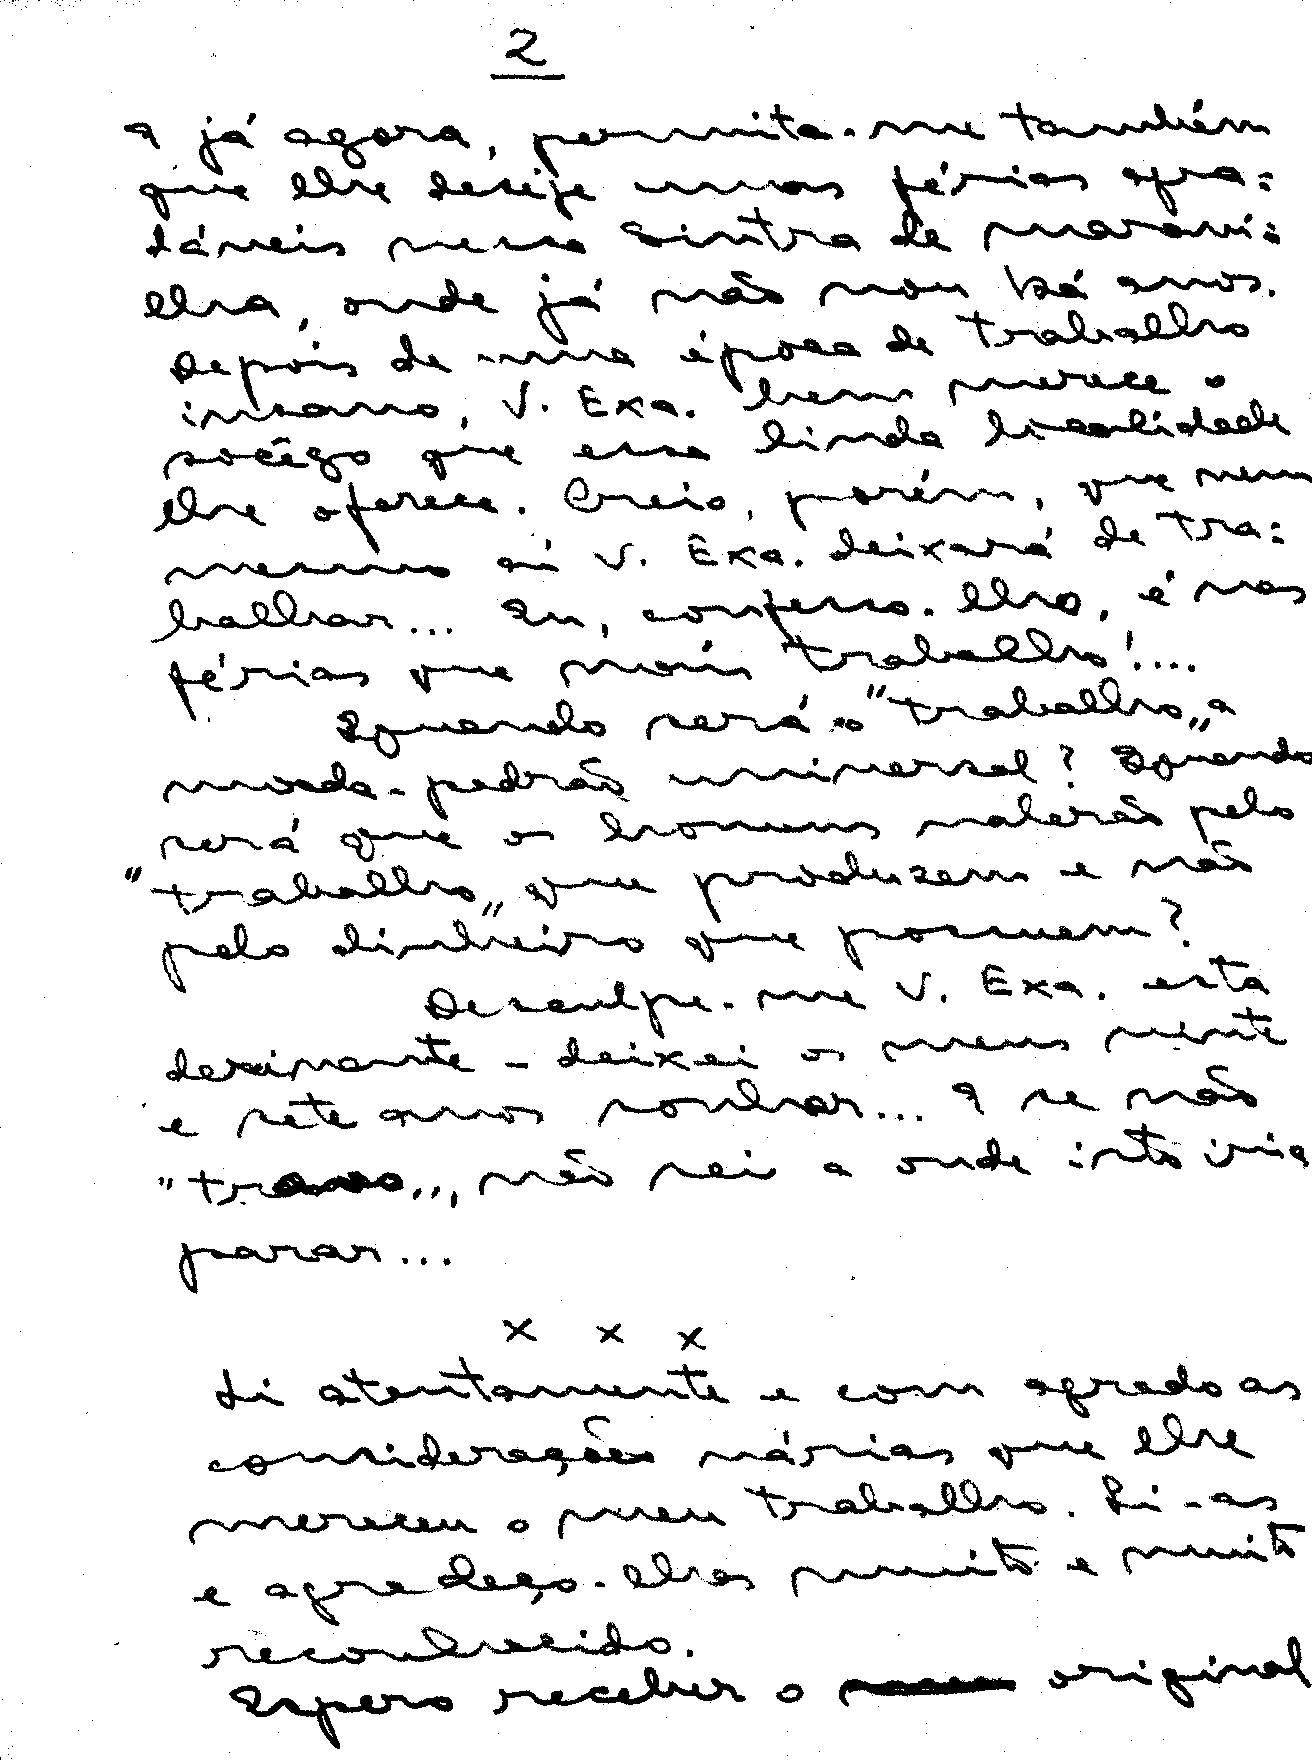 2
E já agora, permita-me também
que lhe deseje umas férias agra=
dáveis nessa Sintra de maravi=
lha, onde já não vou há anos.
Depois de uma época de trabalho
insano, V. Exa. bem merece o
socêgo que essa linda localidade
lhe oferece. Creio, porém, que nem
mesmo aí V. Exa. deixará de tra=
balhar... Eu, confesso-lho, é nas
férias que mais trabalho!....
Quando será o "trabalho" a
moeda-padrão universal? Quando
será que os homens valerão pelo
"trabalho" que produzem e não
pelo dinheiro que possuem?
Desculpe-me V. Exa. esta
derivante - deixei os meus vinte
e sete anos sonhar... E se não
"travo", não sei a onde isto iria
parar...
x x x
Li atentamente e com agrado as
considerações várias que lhe
mereceu o meu trabalho. Li-as
e agradeço-lhas muito e muito
reconhecido.
Espero receber o original